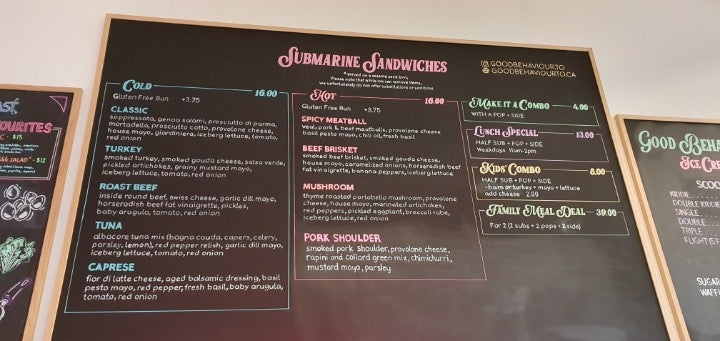 SUBMARINE SANDWICHES
Please note that while we can remove items,
we unfortunately do not offer substitutions or additions
GOODBEHAVIOUR.TO
GOODBEHAVIOURTO.CA
COLD 16.00
Gluten Free Bun +3.75
CLASSIC
soppressata, genoa salami, prosciutto di parma,
mortadella, prosciutto cotto, provolone cheese,
house mayo, giardiniera, iceberg lettuce, tomato,
red onion
TURKEY
smoked turkey, smoked gouda cheese, salsa verde,
pickled artichokes, gramy mustard mayo,
iceberg lettuce, tomato, red onion
ROAST BEEF
inside round beef, swiss cheese, garlic dill mayo,
horseradish beef fat vinaigrette, pickles,
baby arugula, tomato, red onion
TUNA
albacore tuna mix (bagna cauda, capers, celery,
parsley, lemon), red pepper relish, garlic dill mayo,
iceberg lettuce, tomato, red onion
CAPRESE
fior di latte cheese, aged balsamic dressing, basil
pesto mayo, red pepper, fresh basil, baby arugula,
tomato, red onion
HOT 16.00
Gluten Free Bun +3.75
SPICY MEATBALL
Veal, pork & beef meatballs, provolone cheese
basil pesto mayo, chili oil, fresh basil
BEEF BRISKET
smoked beef brisket, smoked gouda cheese,
house mayo, caramelized onions, horseradish beef
fat vinaigrette, banana peppers, iceberg lettuce
MUSHROOM
thyme roasted portobello mushroom, provolone
cheese, house mayo, marinated artichokes,
red peppers, pickled eggplant, broccoli rabe,
iceberg lettuce, red onion
PORK SHOULDER
smoked pork shoulder, provolone cheese,
rapini and collard green mix, chimichurri,
mustard mayo, parsley
MAKE IT A COMBO 4.00
WITH A POP + SIDE
LUNCH SPECIAL 13.00
HALF SUB + POP + SIDE
Weekdays 11am-2pm
KIDS' COMBO 8.00
HALF SUB + POP + SIDE
-ham or turkey + mayo + lettuce
add cheese 2.00
FAMILY MEAL DEAL 39.00
For 2 (2 subs + 2 pops + 2 side)
AST
VOURITES
$15
SALAD" - $12
GOOD BEHA
ICE CRE
SCOO
KIDDIE
DOUBLE KID
SINGLE
DOUBLE
TRIPLE
FLIGHT (5
SUGAR
WAFF